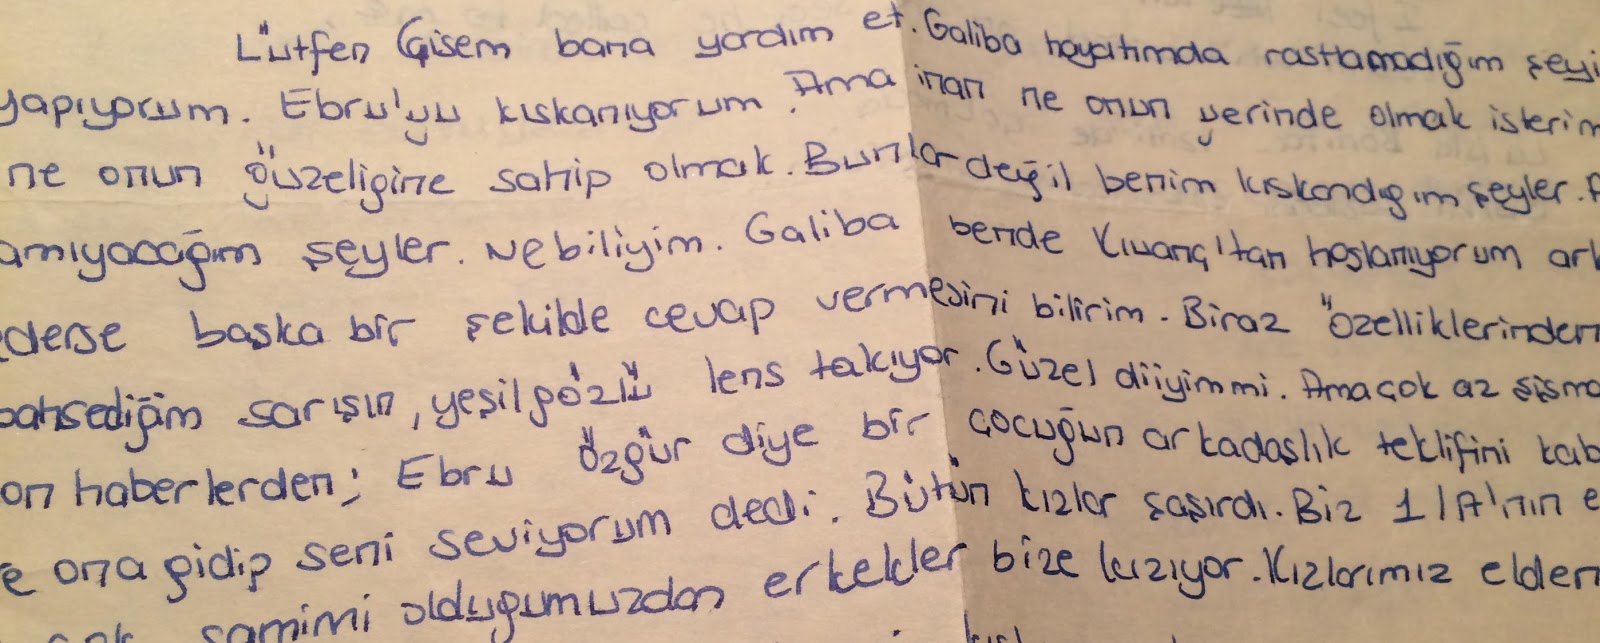 Lütfen Gisem bana yardım et. Galiba hayatımda rastlamadığım şeyi
yapıyorum. Ebru'yu kıskanıyorum. Ama inan ne onun yerinde olmak isterim
ne onun güzeligine sahip olmak. Bunlar değil benim kıskandıgım şeyler. A
amıyacağım şeyler. Nebiliyim. Galiba bende Kıvanç'tan hoşlanıyorum ark
ederse başka bir şekilde cevap vermesini bilirim. Biraz özelliklerinden
bahsediğim sarışın, yeşil gözlü lens takıyor. Güzel diiyimmi. Ama çok az şişma
on haberlerden; Ebru Özgür diye bir çocuğun arkadaşlık teklifini kab
e ona gidip seni seviyorum dedi. Bütün kızlar şaşırdı. Biz 1/A'nın e
samimi oldugumuzdan erkekler bize kızıyor. Kızlarımız elden